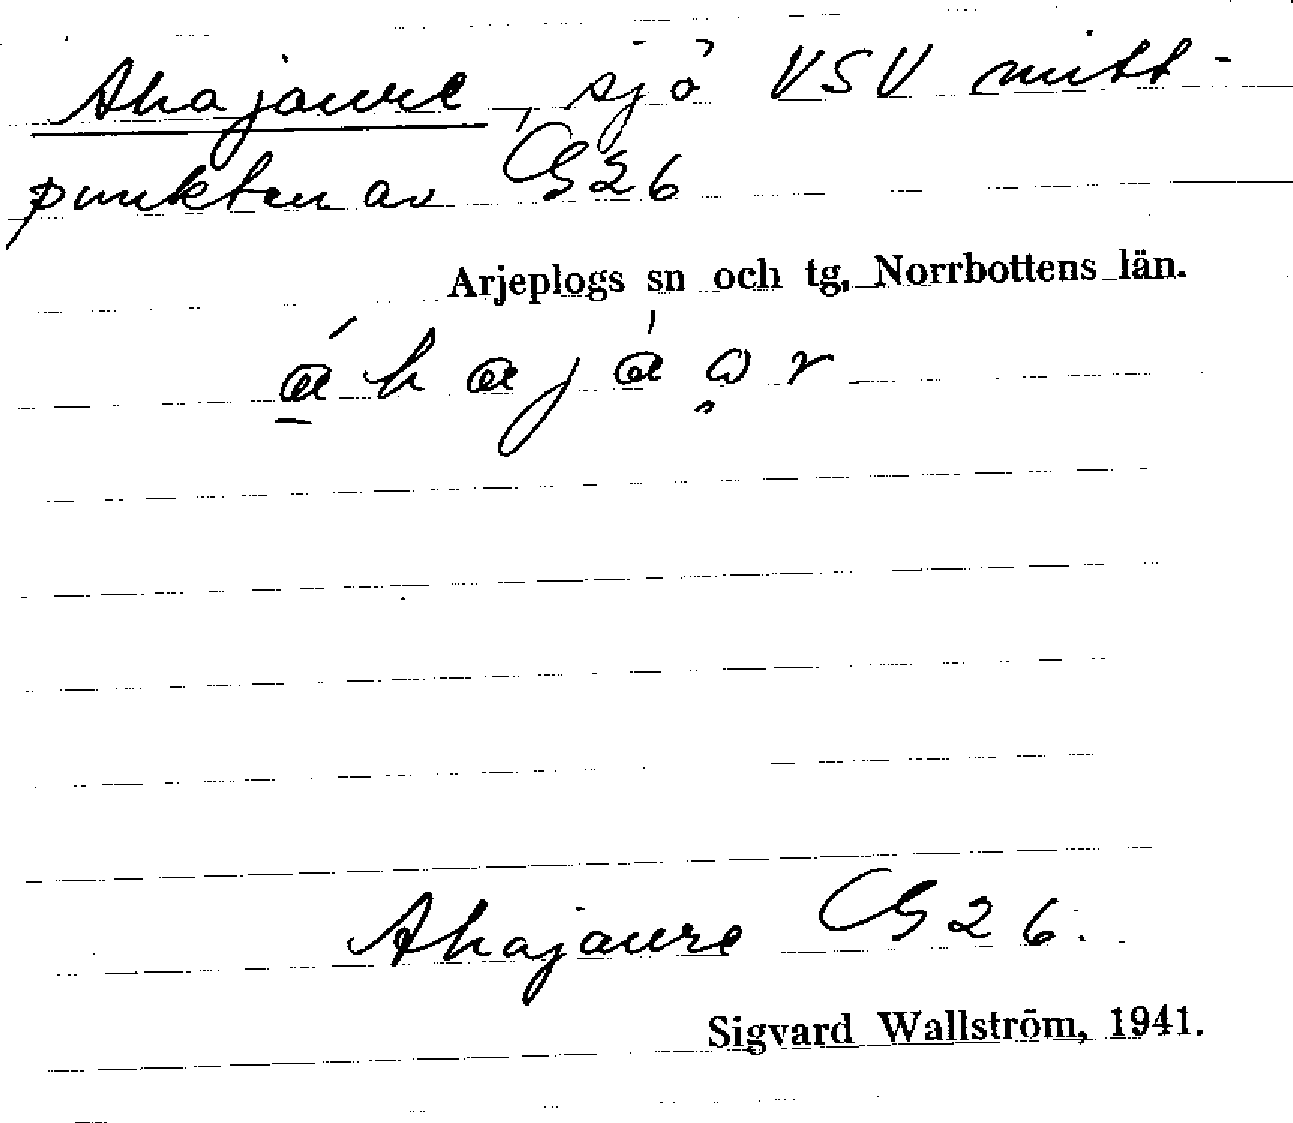 Ahajaure, sjö VSV mitt-
punkten av G26
Arjeplogs sn och tg, Norrbottens län.
Ahajaure G26.
Sigvard Wallström, 1941.